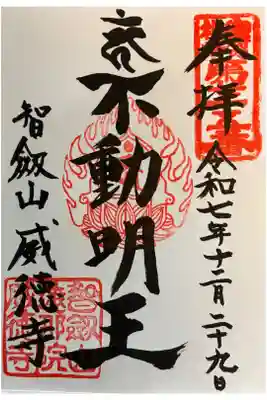 奉拝
令和七年十二月二十九日
不動明王
智劔山威徳寺